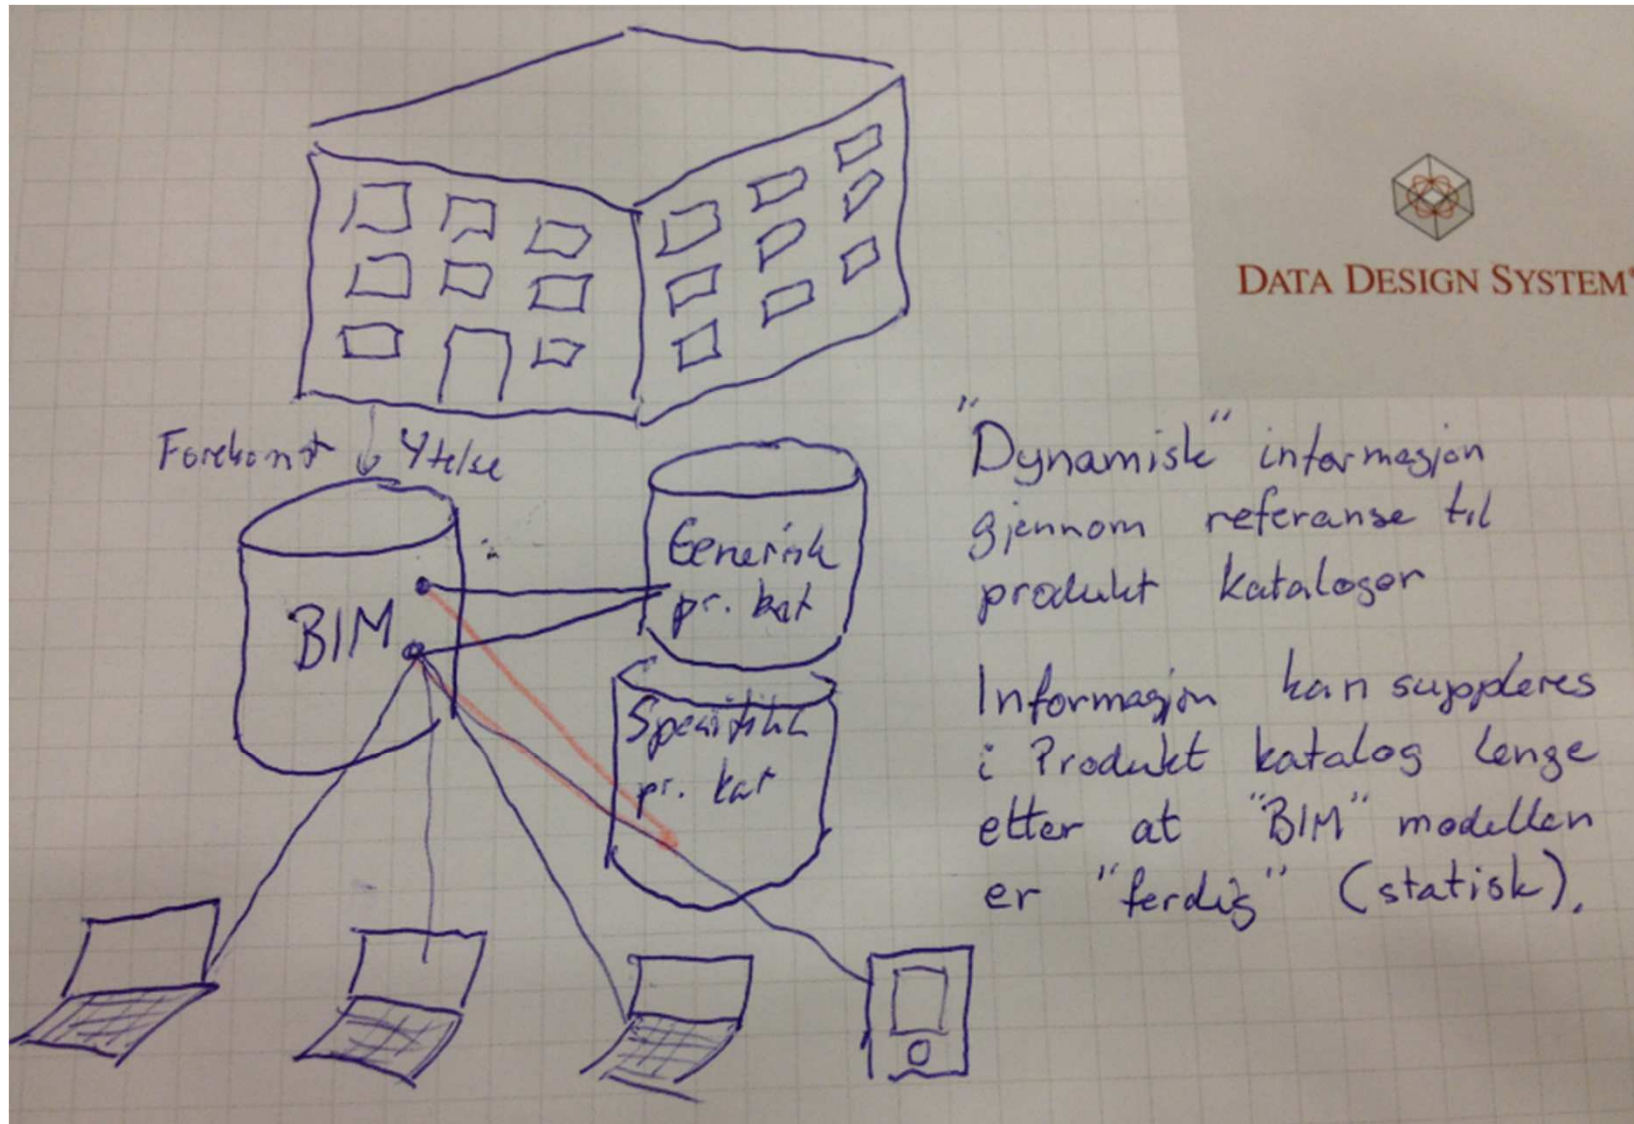 DATA DESIGN SYSTEM®
Forekomst Ytelse
BIM
Generisk
pr. kat
Spesifikk
pr. kat
"Dynamisk" informasjon
gjennom referanse til
produkt kataloger
Informasjon kan suppleres
i Produkt katalog lenge
etter at "BIM" modellen
er "ferdig" (statisk).